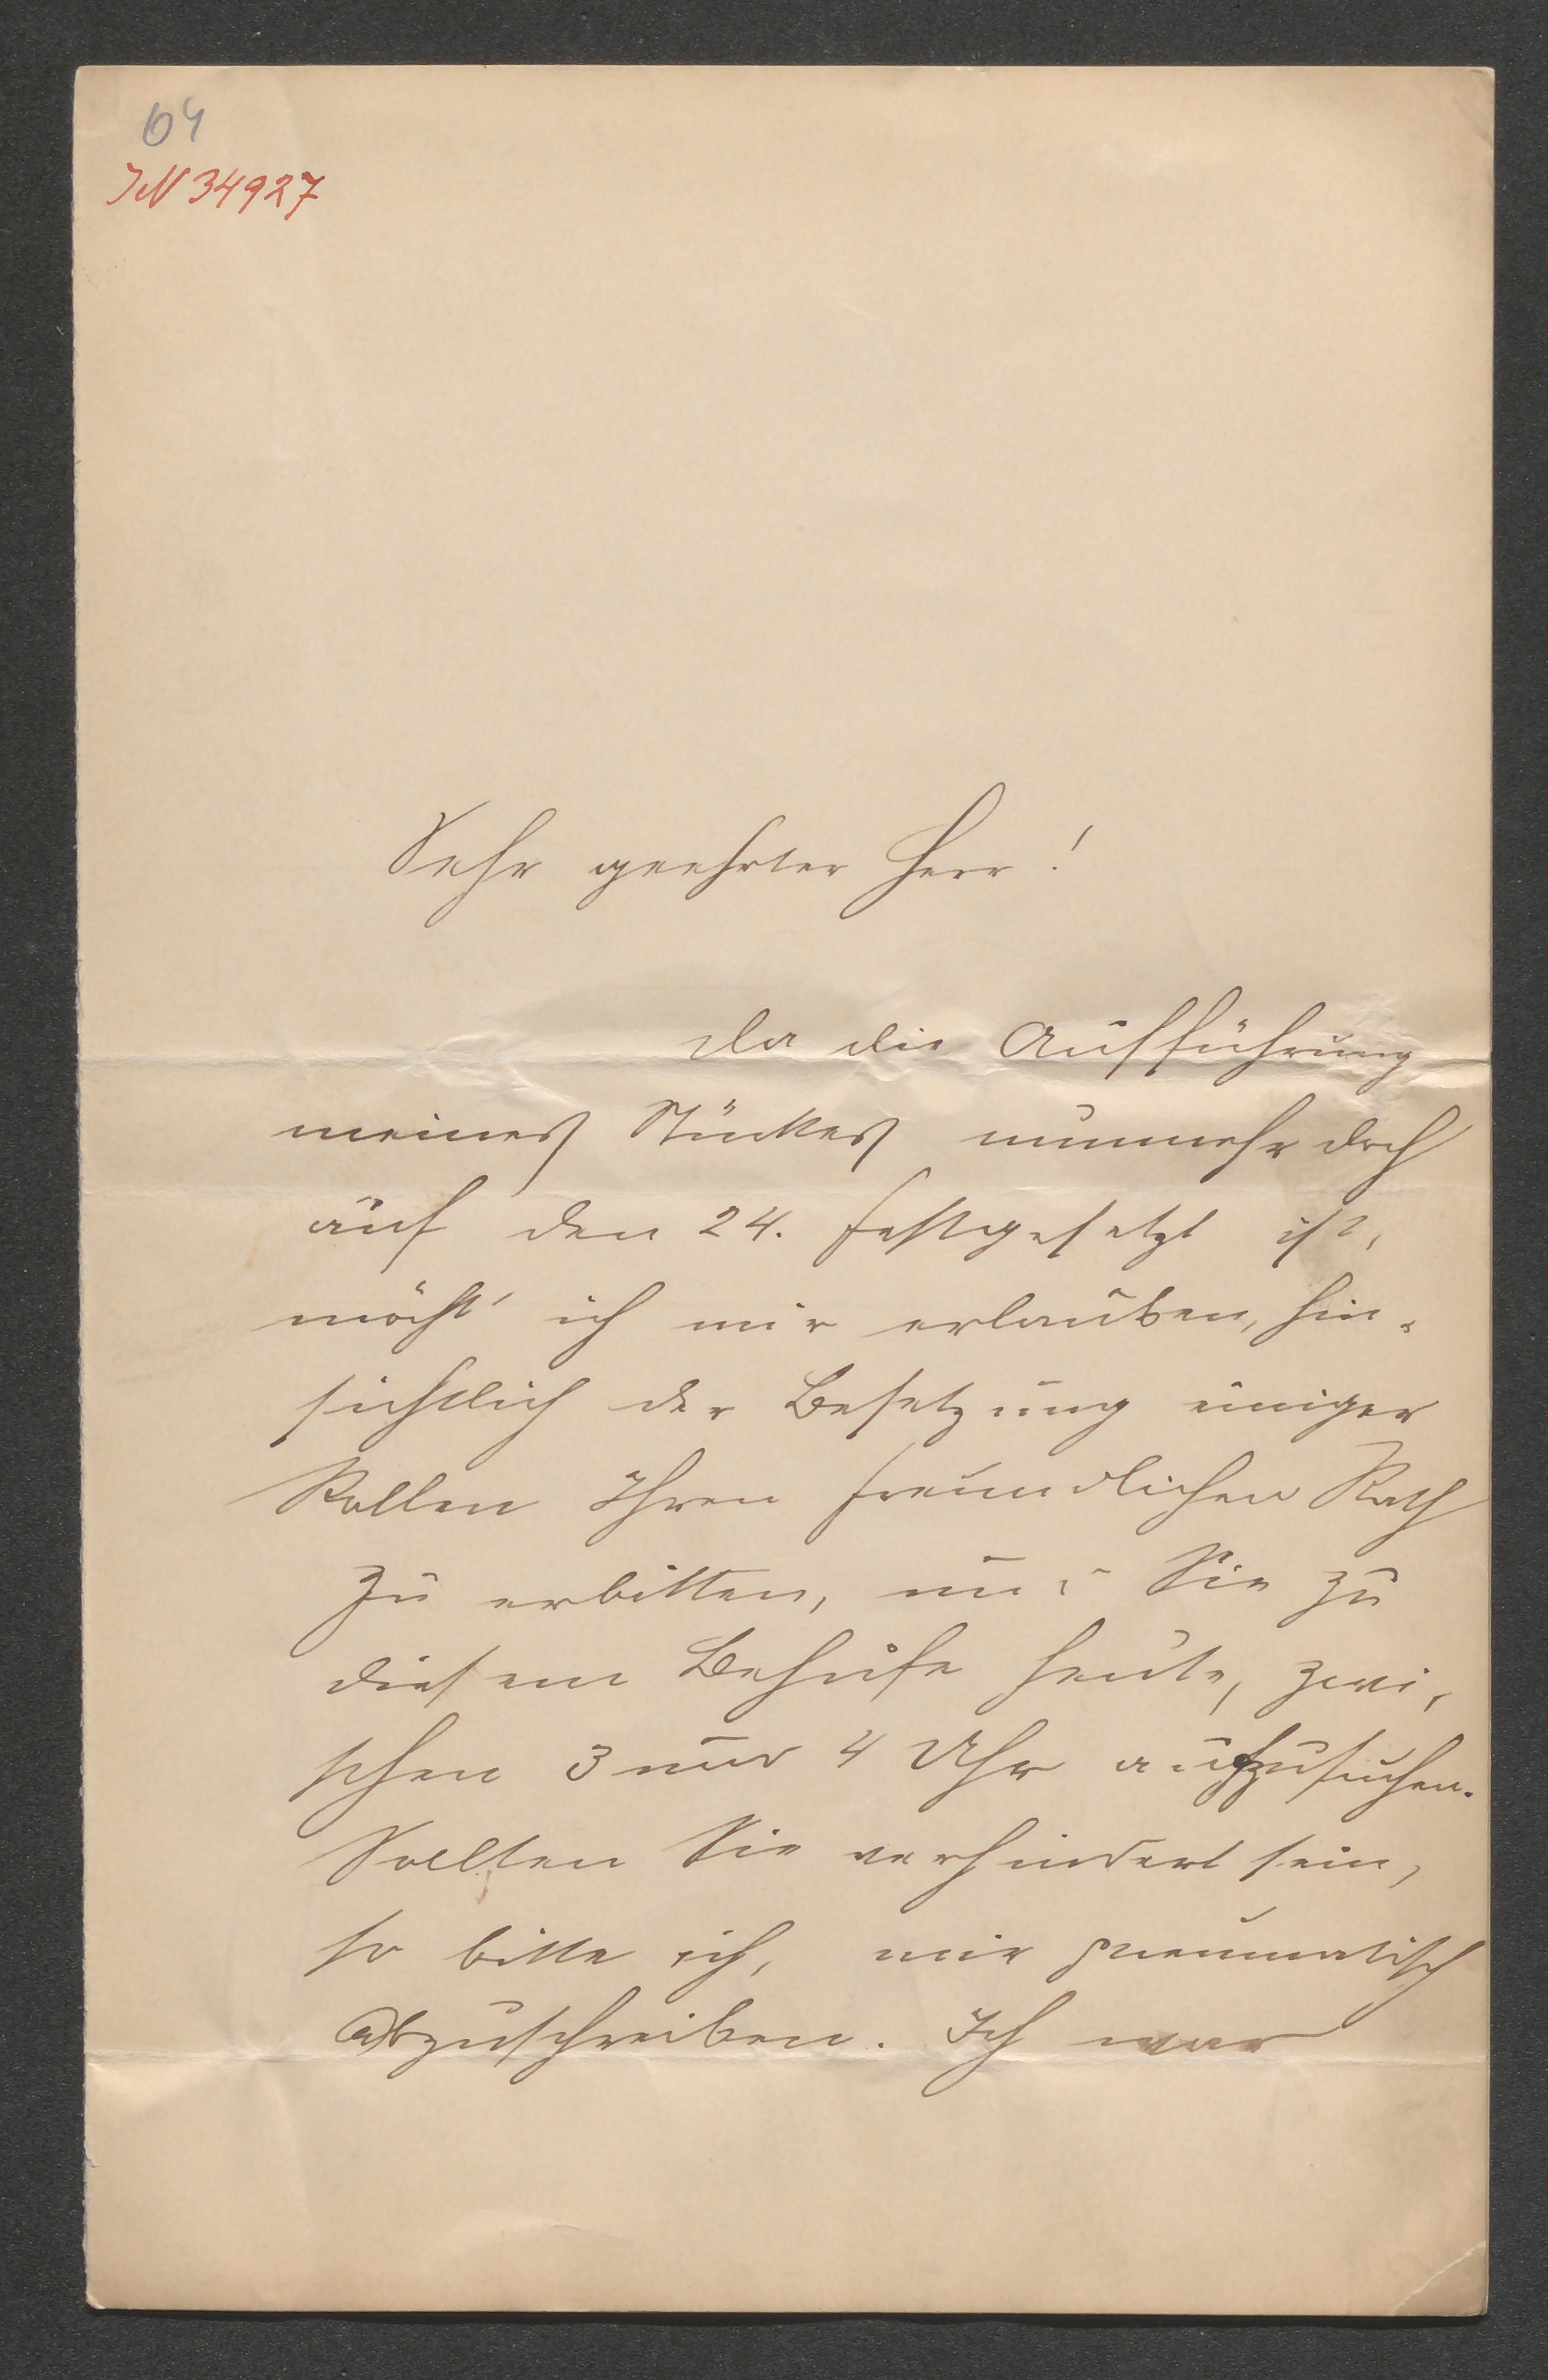 64
IN 34927
Sehr geehrter Herr!
Da die Aufführung
meines Stückes nunmehr doch
auf den 24. festgesetzt ist,
möcht' ich mir erlauben, hin-
sichtlich der Besetzung einiger
Rollen Ihren freundlichen Rath
zu erbitten, und Sie zu
diesem Behufe heute, zwi-
schen 3 und 4 Uhr aufzusuchen.
Sollten Sie verhindert sein,
so bitte ich, mir pneumatisch
abzuschreiben. Ich war